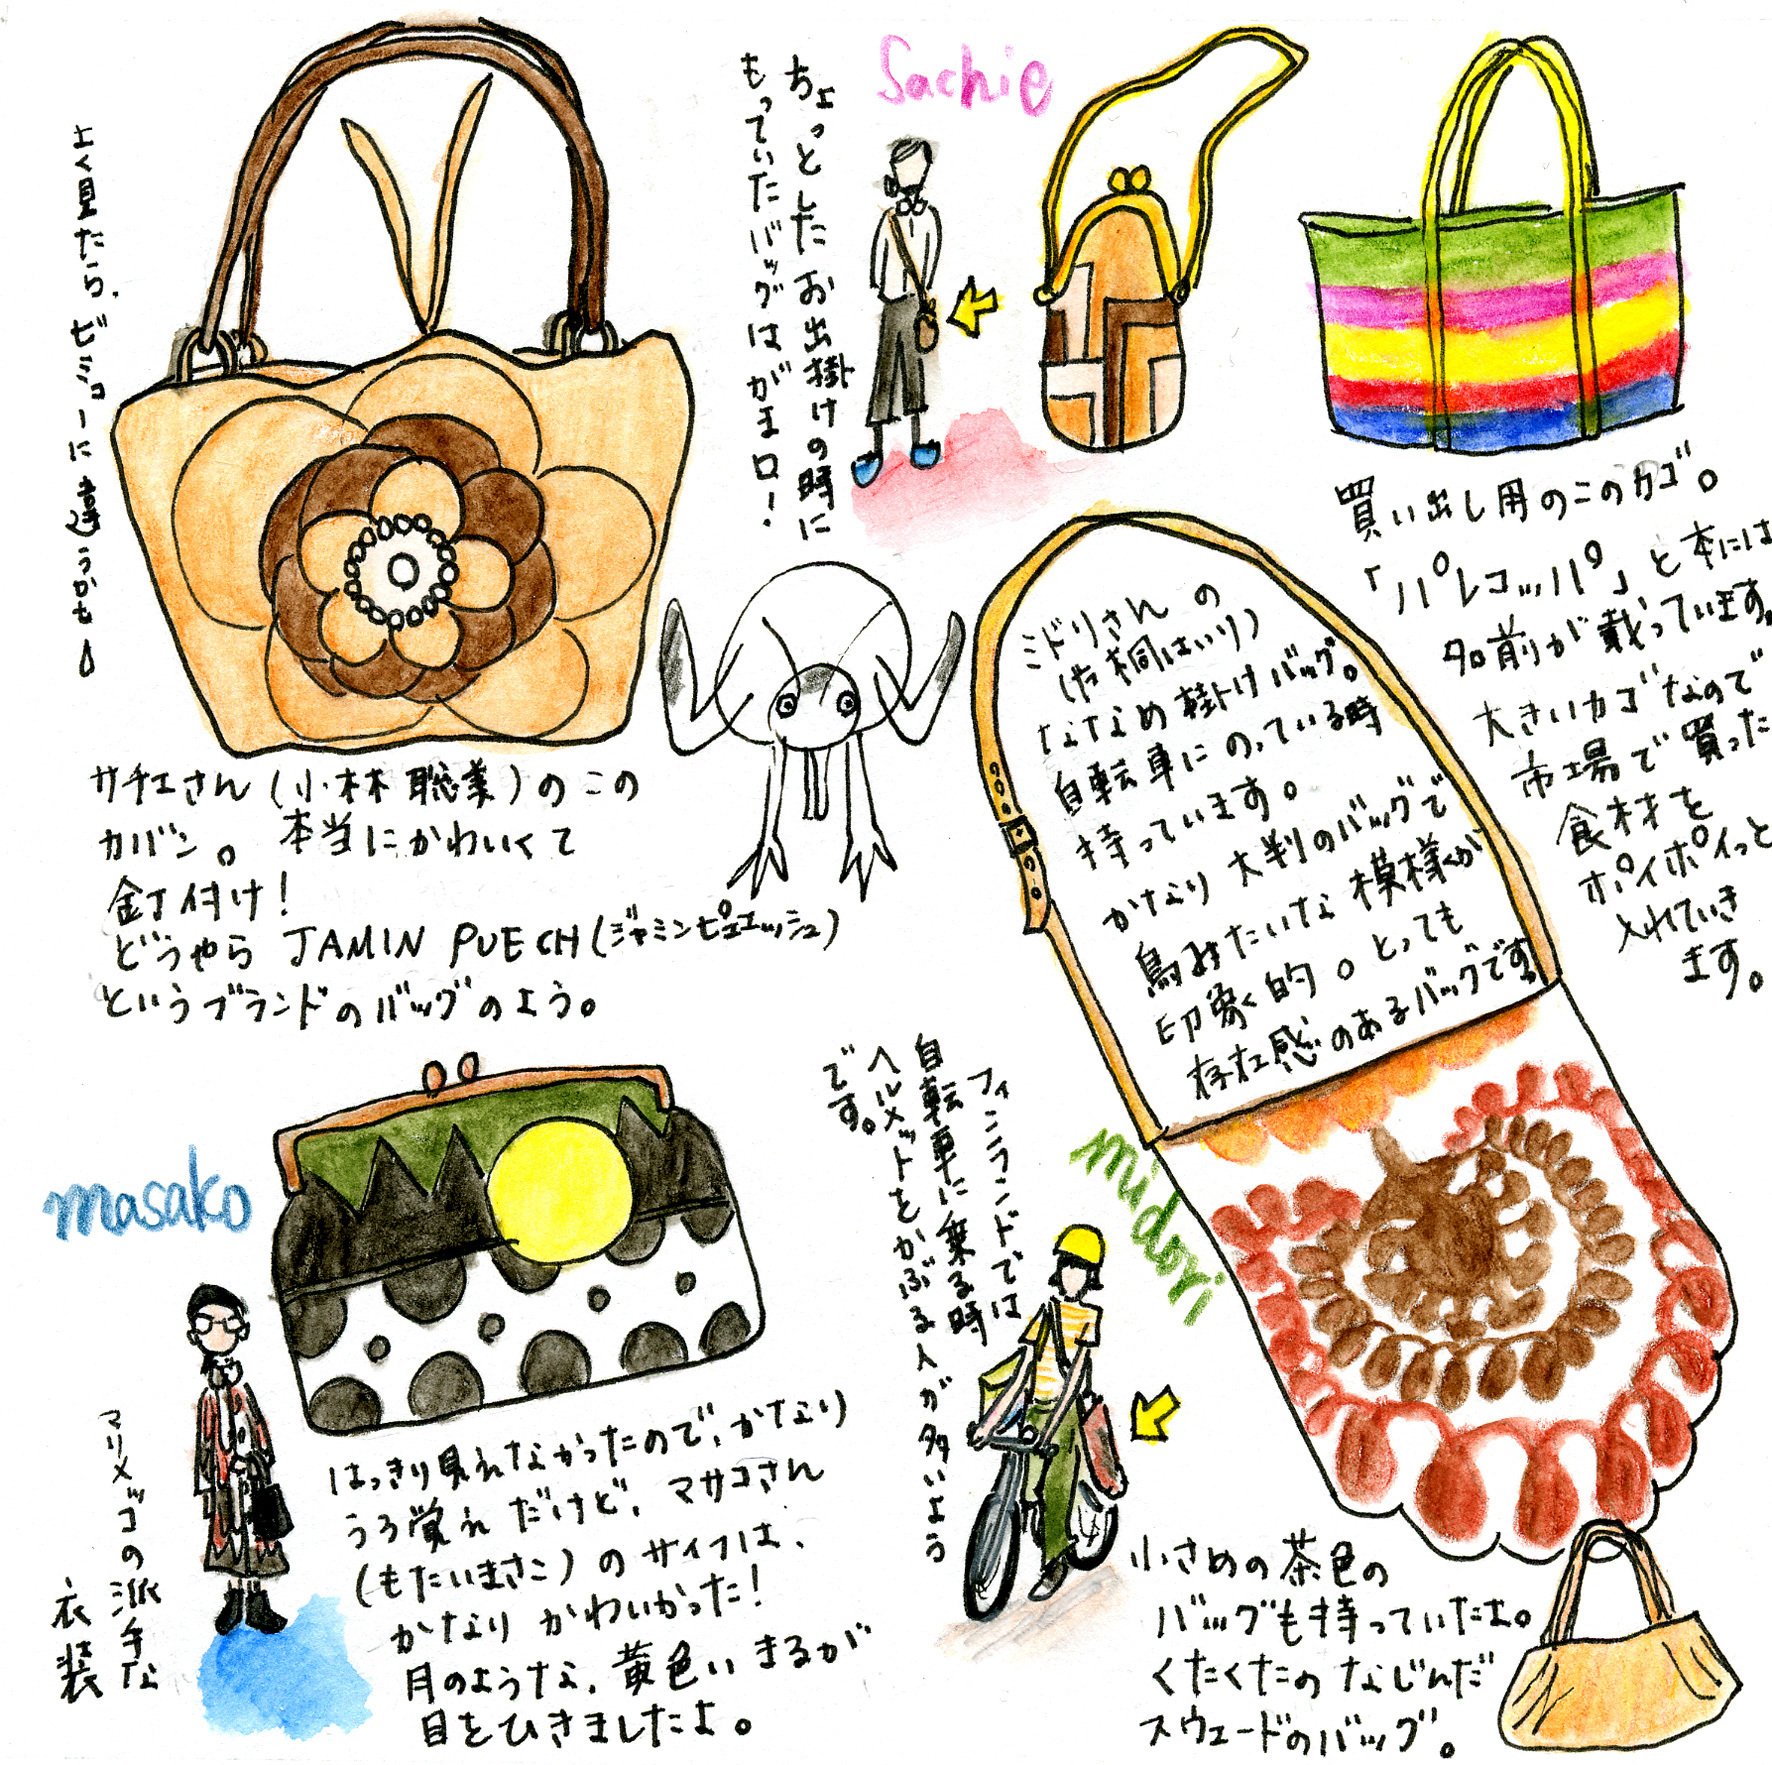 よく見たら、ビミョーに違うかも
サチエさん(小林聡美)のこの
カバン。本当にかわいくて
釘付け!
どうやら JAMIN PUECH(ジャミンピュエッシュ)
というブランドのバッグのよう。
Sachie
ちょっとしたお出掛けの時に
もっていたバッグはがまロ!
買い出し用のこのカゴ。
「パレコッパ」と本には
名前が載っています。
大きいカゴなので
市場で買った
食材を
ポイポイっと
入れていき
ます。
ミドリさんの
(片桐はいり)
ななめ掛けバッグ。
自転車にのっている時
持っています。
かなり大判のバッグで
鳥みたいな模様が
印象的。とっても
存在感のあるバッグです。
midori
フィンランドでは
自転車に乗る時
ヘルメットをかぶる人が多いよう
です。
小さめの茶色の
バッグも持っていたよ。
くたくたのなじんだ
スウェードのバッグ。
masako
マリメッコの派手な
衣装
はっきり見れなかったので、かなり
うろ覚えだけど、マサコさん
(もたいまさこ)のサイフは、
かなりかわいかった!
月のような、黄色いまるが
目をひきましたよ。